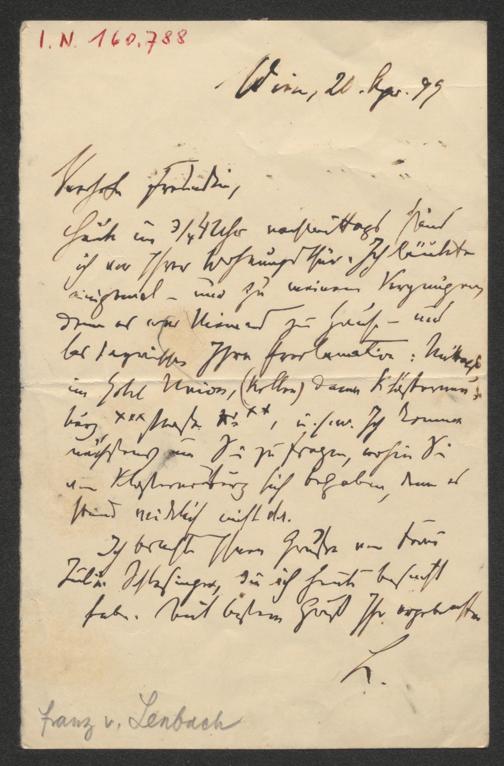 I. N. 160.788
Wien, 20. Apr. 99
Verehrte Freundin,
Heute um 3/4 4 Uhr nachmittags stand
ich vor Ihrer Wohnungsthür. Ich läutete
einigemal – und zu meinem Vergnügen
denn es war Niemand zu Haus – und
las Ihre Proclamation: Mittags
im Hotel Union, dann Klosterneu-
burg, xxx straße xx, u.s.w. Ich komme
nächstens um Sie zu fragen, wohin Sie
in Klosterneuburg sich begeben, denn es
stand wirklich nicht da.
Ich brachte Ihnen Grüße von Frau
Julie Schlesinger, die ich heute besucht
habe. Mit bestem Gruß Ihr ergebenster
L.
Franz v. Lenbach